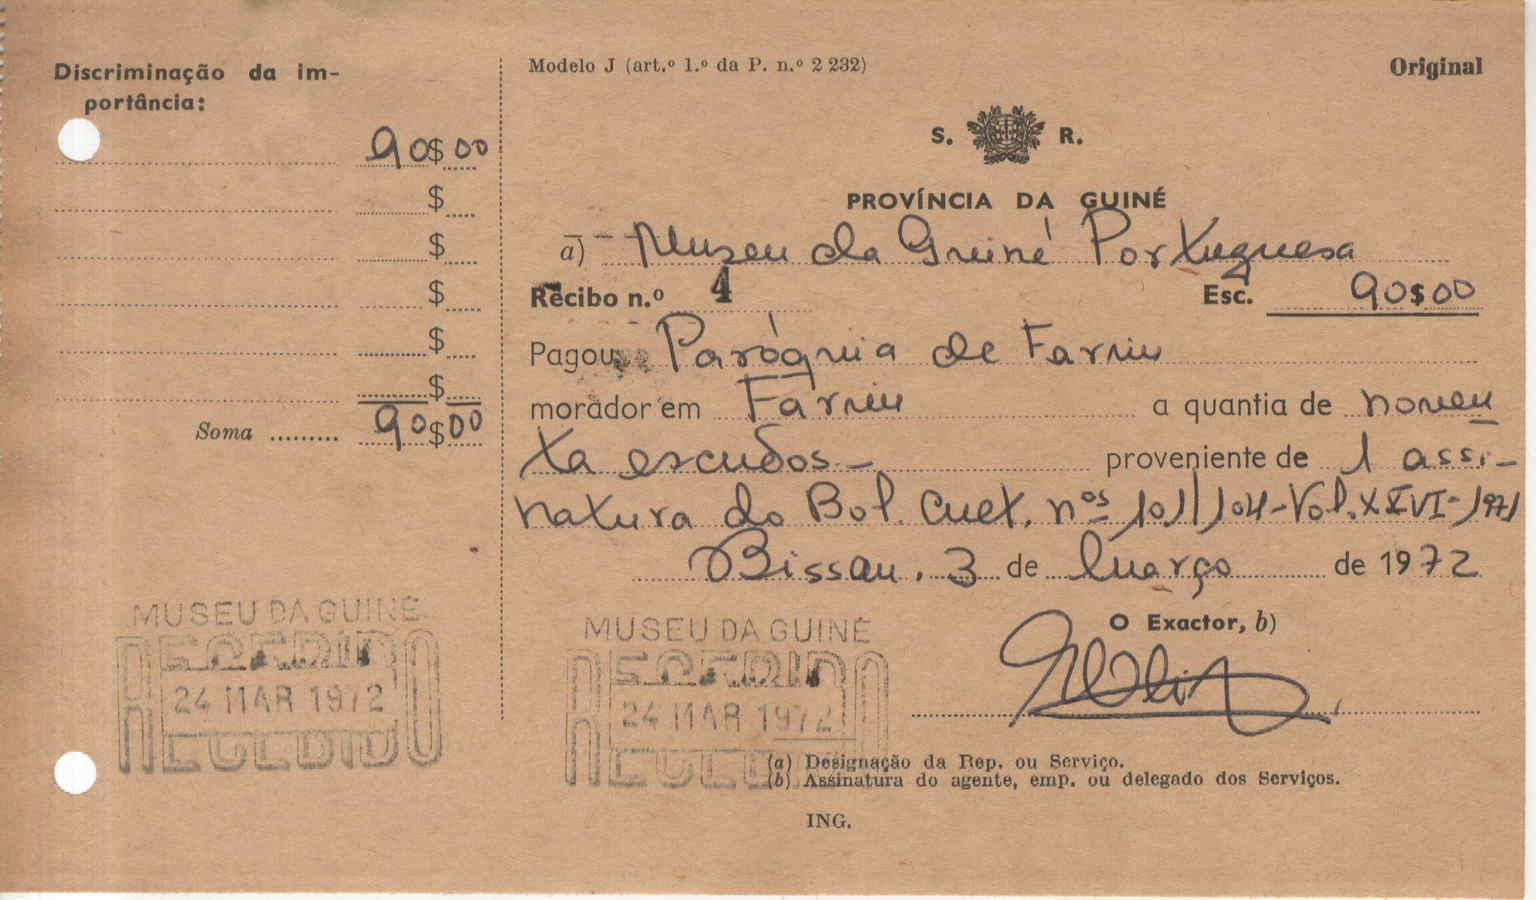 Discriminação da im-
portância:
90$00
$
$
$
$
$
Soma ......... 90$00
Modelo J (art.º 1.º da P. n.º 2 232)
Original
S. R.
PROVÍNCIA DA GUINÉ
a) Museu da Guiné Portuguesa
Recibo n.º 4 Esc. 90$00
Pagou Paróquia de Farim
morador em Farim a quantia de noven
ta escudos - proveniente de 1 assi-
natura do Bol. Cult. nºs 101/104 - Vol. XXVI - 1971
Bissau, 3 de Março de 1972
O Exactor, b)
MUSEU DA GUINÉ
RECEBIDO
24 MAR 1972
RECEBIDO
MUSEU DA GUINÉ
RECEBIDO
24 MAR 1972
RECEBIDO
(a) Designação da Rep. ou Serviço.
(b) Assinatura do agente, emp. ou delegado dos Serviços.
ING.